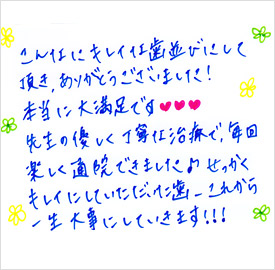 こんなにキレイな歯並びにして
頂き,ありがとうございました!
本当に大満足です♥♥♥
先生の優しく丁寧な治療で,毎回
楽しく通院できました♪せっかく
キレイにしていただけた歯_これから
一生大事にしていきます!!!